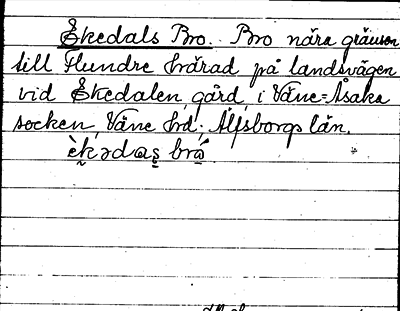 Ekedals Bro. Bro nära gränsen
till Flundre härad på landsvägen
vid Ekedalen, gård, i Väne-Åsaka
socken, Väne hd; Älfsborgs län.